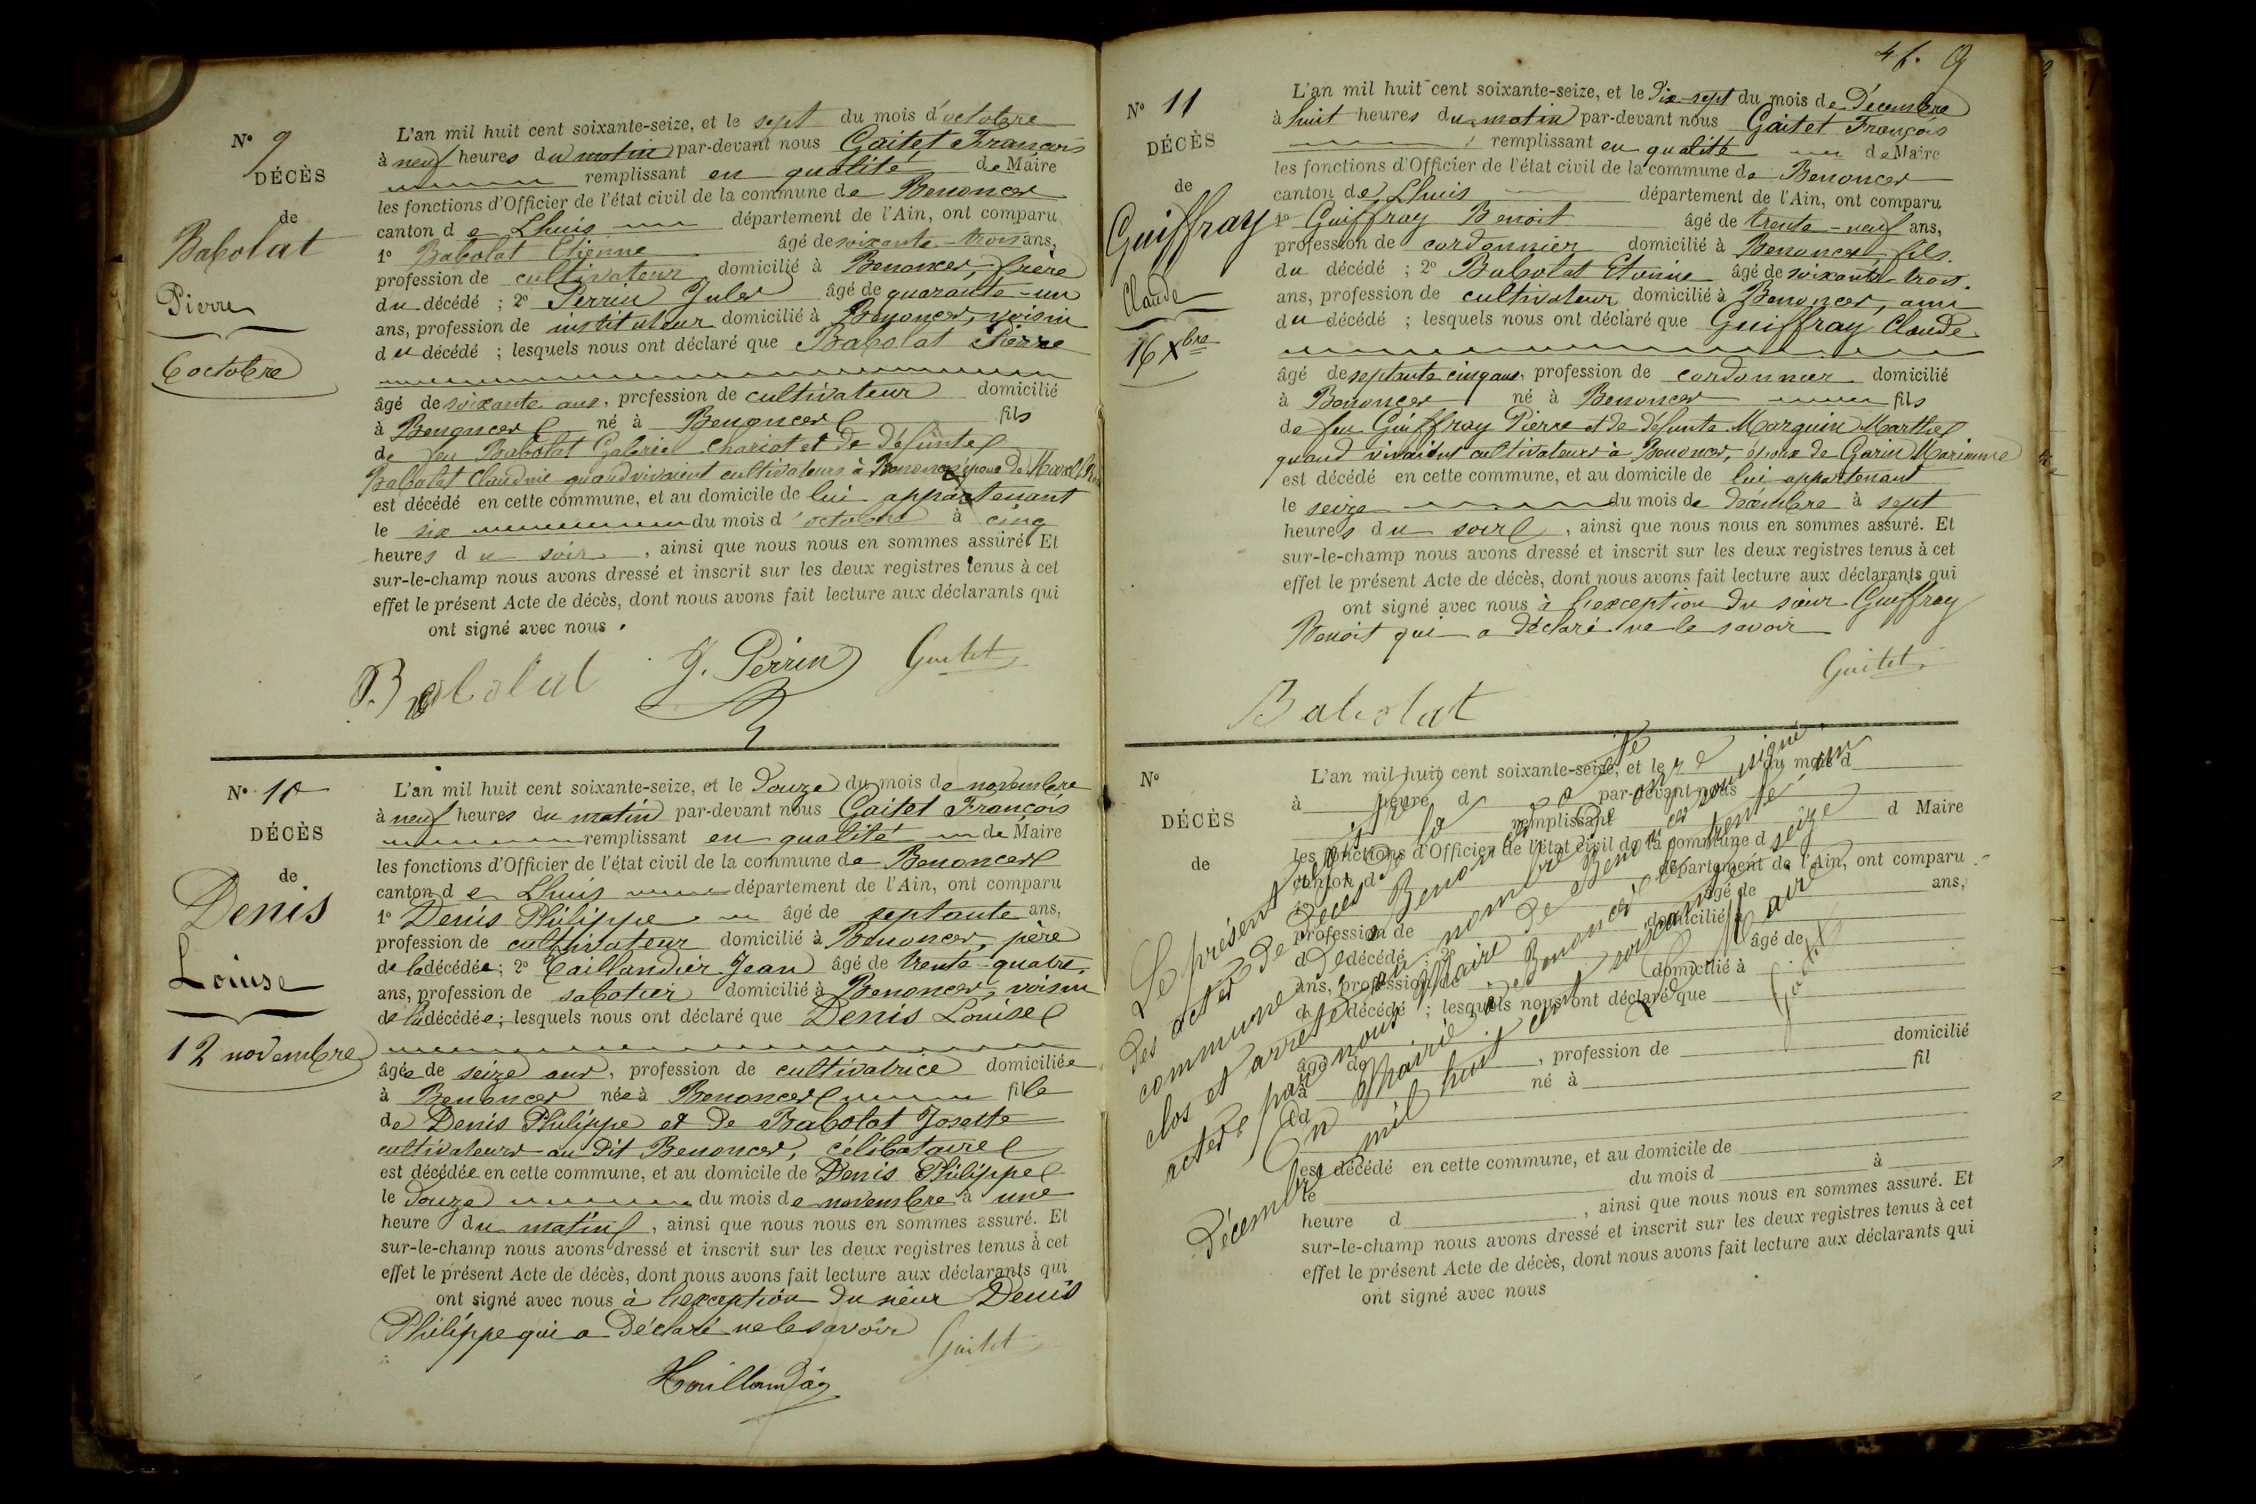 N° 9
DÉCÈS
de
Babolat
Pierre
6 octobre
L'an mil huit cent soixante-seize, et le sept du mois d'octobre
à neuf heures du matin par-devant nous Gaitet François
remplissant en qualité de Maire
les fonctions d'Officier de l'état civil de la commune de Benonces
canton de Lhuis département de l'Ain, ont comparu
1° Babolat Etienne âgé de soixante-trois ans,
profession de cultivateur domicilié à Benonces, frère
du décédé ; 2° Perrin Jules âgé de quarante-un
ans, profession de instituteur domicilié à Benonces, voisin
du décédé ; lesquels nous ont déclaré que Babolat Pierre
âgé de soixante ans, profession de cultivateur domicilié
à Benonces né à Benonces fils
de feu Babolat Gabriel Chariot et de défunte
Babolat Claudine quand vivaient cultivateurs à Benonces, époux de
est décédé en cette commune, et au domicile de lui appartenant
le six du mois d'octobre à cinq
heures du soir, ainsi que nous nous en sommes assuré. Et
sur-le-champ nous avons dressé et inscrit sur les deux registres tenus à cet
effet le présent Acte de décès, dont nous avons fait lecture aux déclarants qui
ont signé avec nous.
Babolat J. Perrin Gaitet
N° 10
DÉCÈS
de
Denis
Louise
12 novembre
L'an mil huit cent soixante-seize, et le douze du mois de novembre
à neuf heures du matin par-devant nous Gaitet François
remplissant en qualité de Maire
les fonctions d'Officier de l'état civil de la commune de Benonces
canton de Lhuis département de l'Ain, ont comparu
1° Denis Philippe âgé de septante ans,
profession de cultivateur domicilié à Benonces, père
de la décédée ; 2° Taillandier Jean âgé de trente-quatre
ans, profession de sabotier domicilié à Benonces, voisin
de la décédée ; lesquels nous ont déclaré que Denis Louise
âgée de seize ans, profession de cultivatrice domiciliée
à Benonces née à Benonces fille
de Denis Philippe et de Babolat Josette
cultivateurs au dit Benonces, célibataire
est décédée en cette commune, et au domicile de Denis Philippe
le douze du mois de novembre à une
heure du matin, ainsi que nous nous en sommes assuré. Et
sur-le-champ nous avons dressé et inscrit sur les deux registres tenus à cet
effet le présent Acte de décès, dont nous avons fait lecture aux déclarants qui
ont signé avec nous à l'exception du sieur Denis
Philippe qui a déclaré ne le savoir
Gaitet
4 f. 9
N° 11
DÉCÈS
de
Guiffray
Claude
16 Xbre
L'an mil huit cent soixante-seize, et le dix-sept du mois de Décembre
à huit heures du matin par-devant nous Gaitet François
remplissant en qualité de Maire
les fonctions d'Officier de l'état civil de la commune de Benonces
canton de Lhuis département de l'Ain, ont comparu
1° Guiffray Benoit âgé de trente-neuf ans,
profession de cordonnier domicilié à Benonces, fils
du décédé ; 2° Babolat Etienne âgé de soixante-trois
ans, profession de cultivateur domicilié à Benonces, ami
du décédé ; lesquels nous ont déclaré que Guiffray Claude
âgé de septante cinq ans, profession de cordonnier domicilié
à Benonces né à Benonces fils
de feu Guiffray Pierre et de défunte Marguin Marthe
quand vivaient cultivateurs à Benonces, époux de Garin Marianne
est décédé en cette commune, et au domicile de lui appartenant
le seize du mois de décembre à sept
heures du soir, ainsi que nous nous en sommes assuré. Et
sur-le-champ nous avons dressé et inscrit sur les deux registres tenus à cet
effet le présent Acte de décès, dont nous avons fait lecture aux déclarants qui
ont signé avec nous à l'exception du sieur Guiffray
Benoit qui a déclaré ne le savoir
Gaitet
Babolat
N°
DÉCÈS
de
L'an mil huit cent soixante-seize, et le du mois d
à heure d par-devant nous
remplissant d Maire
les fonctions d'Officier de l'état civil de la commune d
canton d département de l'Ain, ont comparu
1° âgé de ans,
profession de domicilié à
d décédé ; 2° âgé de
ans, profession de domicilié à
d décédé ; lesquels nous ont déclaré que
âgé de , profession de domicilié
à né à fil
d
est décédé en cette commune, et au domicile de
le du mois d à
heure d , ainsi que nous nous en sommes assuré. Et
sur-le-champ nous avons dressé et inscrit sur les deux registres tenus à cet
effet le présent Acte de décès, dont nous avons fait lecture aux déclarants qui
ont signé avec nous
Le présent registre
des actes de décès de la
commune de Benonces a été
clos et arrêté au nombre de onze
actes par nous Maire de Benonces soussigné.
En Mairie, à Benonces le trente-un
décembre mil huit cent soixante seize
Le Maire
Gaitet